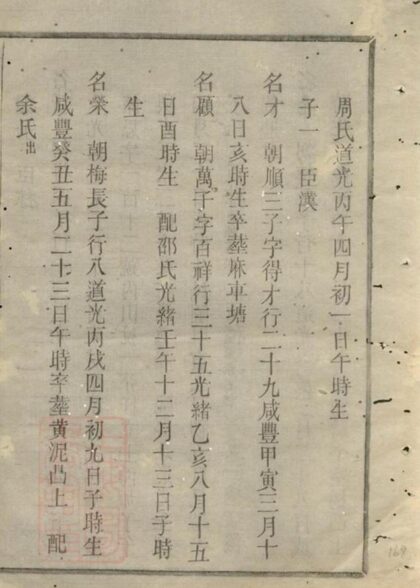 周氏道光丙午四月初一日午時生
子一　臣漢
名才　朝順三子字得才行二十九咸豐甲寅三月十
八日亥時生卒塟麻車塘
名顧　朝萬子字百祥行三十五光緒乙亥八月十五
日酉時生　配邵氏光緒壬午十二月十三日子時
生
名榮　朝梅長子行八道光丙戌四月初九日子時生
咸豐癸丑五月二十三日午時卒塟黃泥凸上　配
余氏出
169